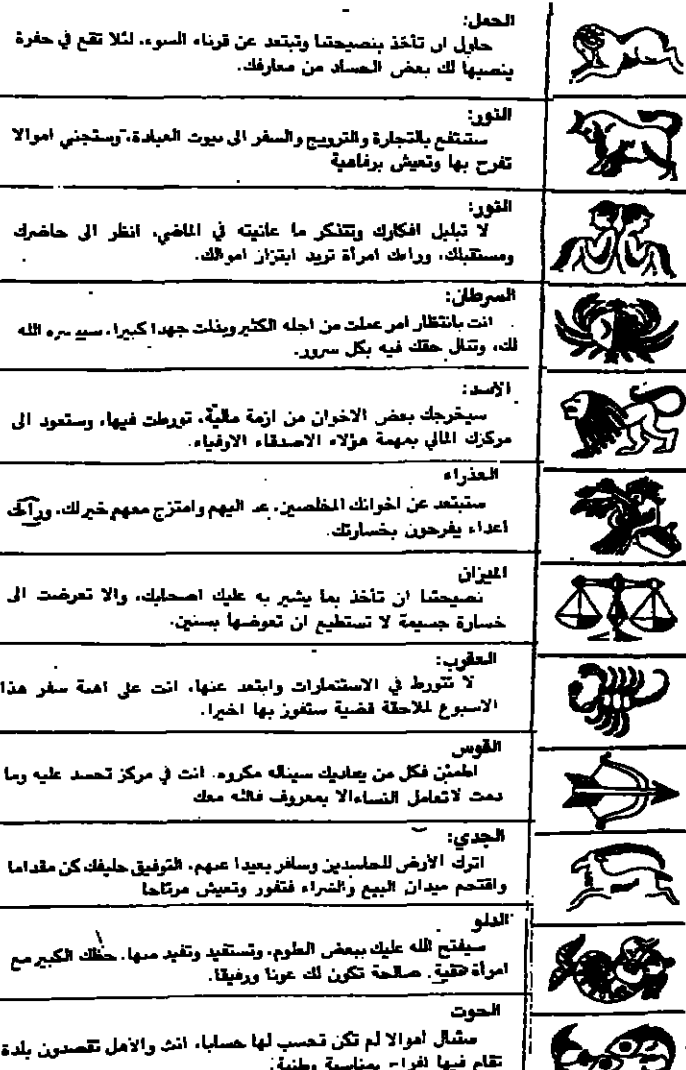 الحمل:
حاول ان تأخذ بنصيحتنا وتبتعد عن قرناء السوء، لئلا تقع في حفرة
ينصبها لك بعض الحساد من معارفك.
الثور:
ستنتفع بالتجارة والترويج والسفر الى بيوت العبادة، وستجني اموالا
تفرح بها وتعيش برفاهية
الثور:
لا تبلبل افكارك وتتذكر ما عانيته في الماضي، انظر الى حاضرك
ومستقبلك، وراءك امرأة تريد ابتزاز اموالك.
السرطان:
انت بانتظار امر عملت من اجله الكثير وبذلت جهدا كبيرا، سييسره الله
لك، وتنال حقك فيه بكل سرور.
الاسد:
سيخرجك بعض الاخوان من ازمة مالية، تورطت فيها، وستعود الى
مركزك المالي بمهمة هؤلاء الاصدقاء الاوفياء.
العذراء
ستبتعد عن اخوانك المخلصين، عد اليهم وامتزج معهم خير لك، وراءك
اعداء يفرحون بخسارتك.
الميزان
نصيحتنا ان تأخذ بما يشير به عليك اصحابك، والا تعرضت الى
خسارة جسيمة لا تستطيع ان تعوضها بسنين.
العقرب:
لا تتورط في الاستثمارات وابتعد عنها، انت على اهبة سفر هذا
الاسبوع لملاحقة قضية ستفوز بها اخيرا.
القوس
اطمئن فكل من يعاديك سيناله مكروه. انت في مركز تحسد عليه وما
دمت لاتعامل النساءالا بمعروف فالله معك
الجدي:
اترك الأرض للحاسدين وسافر بعيدا عنهم، التوفيق حليفك كن مقداما
واقتحم ميدان البيع والشراء فتفوز وتعيش مرتاحا
الدلو
سيفتح الله عليك ببعض العلوم، وتستفيد وتفيد منها. حظك الكبير مع
امرأة تقية. صالحة تكون لك عونا ورفيقا.
الحوت
ستنال اموالا لم تكن تحسب لها حسابا، انت والاهل تقصدون بلدة
تقام فيها افراح بمناسبة وطنية.